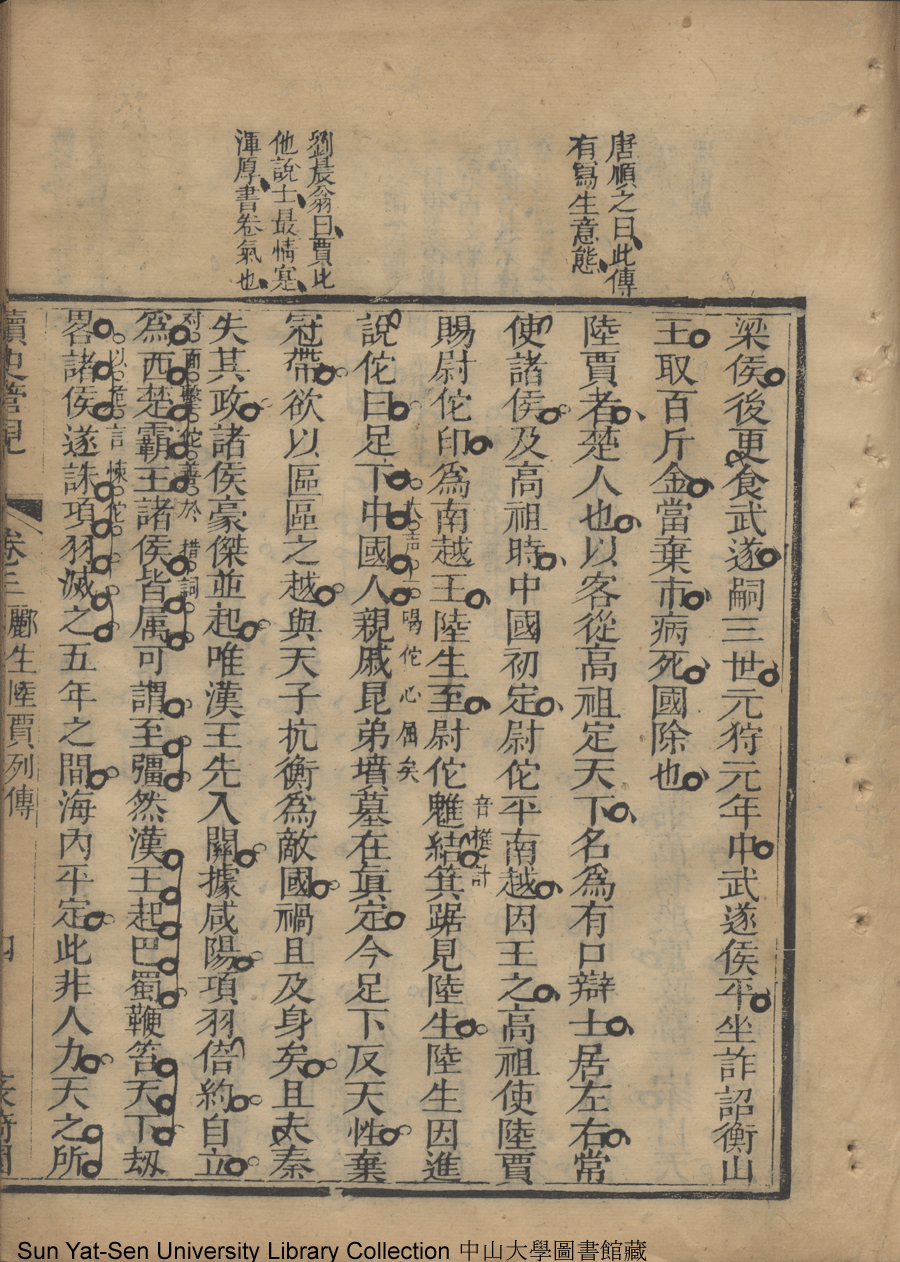 唐順之曰此傳
有寫生意態
劉辰翁曰賈比
他說士最情寔
渾厚書卷氣也
梁侯後更食武遂嗣三世元狩元年中武遂侯平坐詐詔衡山
王取百斤金當棄市病死國除也
陸賈者楚人也以客從高祖定天下名為有口辯士居左右常
使諸侯及高祖時中國初定尉佗平南越因王之高祖使陸賈
賜尉佗印為南越王陸生至尉佗魋結箕踞見陸生陸生因進
音椎計
說佗曰足下中國人親戚昆弟墳墓在真定今足下反天性棄
大声一喝佗心屈矣
冠帶欲以區區之越與天子抗衡為敵國禍且及身矣且夫秦
失其政諸侯豪傑並起唯漢王先入關據咸陽項羽倍約自立
為西楚霸王諸侯皆属可謂至彊然漢王起巴蜀鞭笞天下劫
对面擊佗善於措詞
畧諸侯遂誅項羽滅之五年之間海內平定此非人力天之所
以危言悚佗
讀史管見 卷三 酈生陸賈列傳 四
Sun Yat-Sen University Library Collection 中山大學圖書館藏